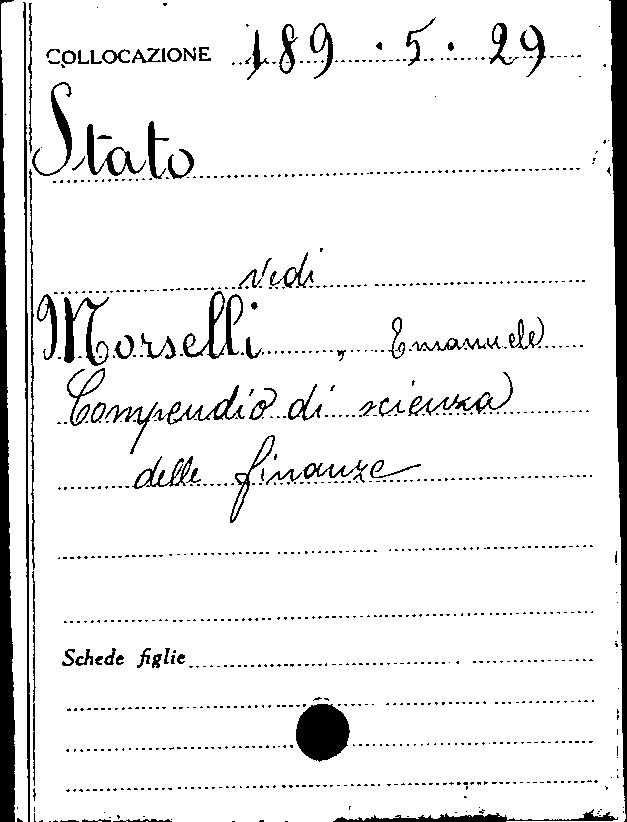 COLLOCAZIONE 189.5.29
Stato
vedi
Morselli, Emanuele
Compendio di scienza
delle finanze
Schede figlie